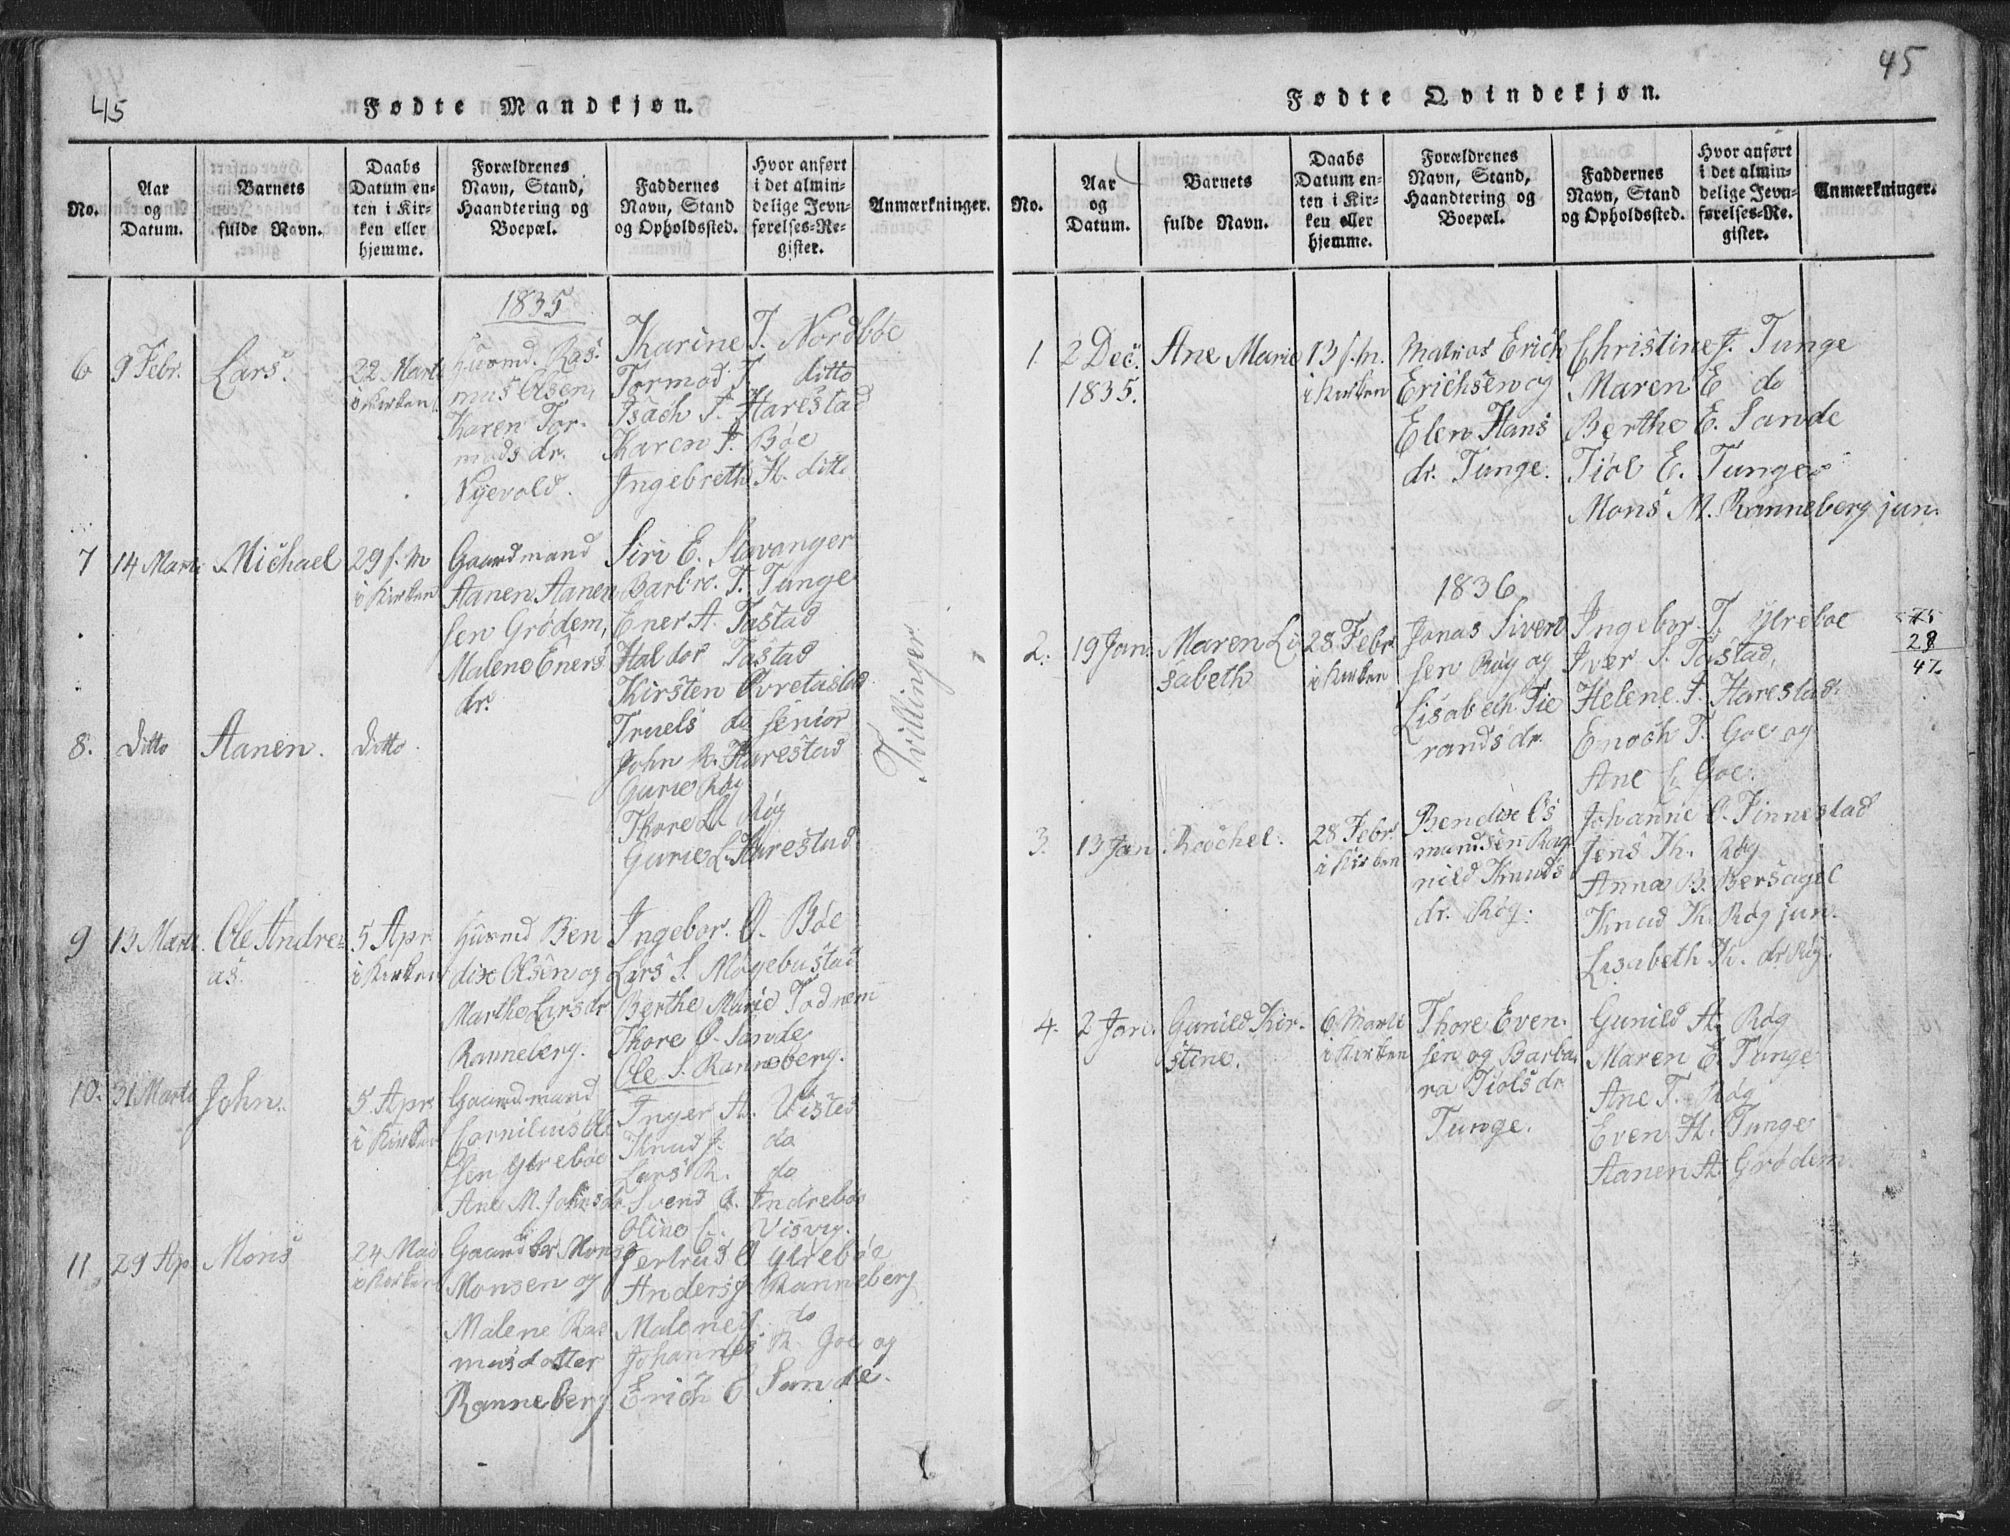 45
Fødte Mandkjøn.
No.
Aar
og
Datum.
Barnets
fulde Navn.
Daabs
Datum en-
ten i Kir-
ken eller
hjemme.
Forældrenes
Navn, Stand,
Haandtering og
Boepæl.
Faddernes
Navn, Stand
og Opholdssted.
Hvor anført
i det almin-
delige Jevn-
førelses-Re-
gister.
Anmærkninger.
1835
6
9 Febr.
Lars.
22 Marti
i Kirken
Huusmd. Ras-
mus Olsen,
Karen Tor-
mods dr.
Karine T. Nordbøe
Tormod T. ditto
Isach I. Harestad
Karen I. Bøe
Ingebreth H. ditto
7
14 Marti
Michael
29 s. m
i Kirken
Gaardmand
Aanen Aanen
sen Grødem,
Malene Eners
dr.
Siri E. Stavanger
T. Tunge
Ener A. Tastad
Haldor Tastad
Kirsten Øvretastad
Truels do senior
John R. Harestad
Gurie Røg
Thore Røg
Gurie L. Harestad
8.
Ditto
Aanen.
Ditto.
Tvillinger
9
13 Marti
Ole Andre-
as.
5 Apr
i Kirken
Huusmd Ben
dix Olsen og
Marthe Larsdr
Ranneberg.
Ingebor. O. Bøe
Lars S. Møgebustad
Berthe Marie Todnem
Thore O. Sande
Ole S. Ranneberg.
10.
31 Marti
John.
5 Apr
i Kirken
Gaardmand
Cornilius Ol
sen Ytrebøe
Ane M. Johnsdr
Inger A. Visted
Knud J. do
Lars R. do
Svend Indrebøe
Visvig.
11
29 Ap
Mons
24 Mai
i Kirken
Gaardbr Mons
Monsen og
Malene Ras
musdotter
Ranneberg
Gertrud O Ytrebøe
Anders J Ranneberg
Malene do
Johannes R. Goe og
Erich E Sande.
45
Fødte Qvindekjøn.
No.
Aar
og
Datum.
Barnets
fulde Navn.
Daabs
Datum en-
ten i Kir-
ken eller
hjemme.
Forældrenes
Navn, Stand,
Haandtering og
Boepæl.
Faddernes
Navn, Stand
og Opholdssted.
Hvor anført
i det almin-
delige Jevn-
førelses-Re-
gister.
Anmærkninger.
1
2 Dec.
1835.
Ane Marie
13 s. m.
i Kirken
Erich
Erichsen og
Elen Hans
dr. Tunge.
Christine J. Tunge
Maren E do
Berthe E. Sande
Tiøl E. Tunge
Mons M. Ranneberg jun.
1836
2.
19 Jan.
Maren Li
sabeth
28 Febr
i Kirken
Jonas Sivert
sen Røg og
Lisabeth Tie
rands dr.
Ingebor. T. Ytreboe
Iver S. Tastad,
Helene I. Harestad.
Enoch T. Goe og
Ane Goe.
75
28
47
3.
13 Jan
Rachel.
28 Febr.
i Kirken
Bendix Os
mundsen Rag
nild Knuds
dr. Røg.
Johanne O. Finnestad
Jens Th. Røg
Anna B. Bersagel
Knud K. Røg jun.
Lisabeth K. dr Røg.
4.
2 Jan.
Gunild Kir-
stine.
6 Marti
i Kirken
Thore Even-
sen og Barba
ra Tiøls dr
Tunge.
Gunild A. Røg
Maren E Tunge
Ane T. Røg
Even H. Tunge
Aanen A. Grødem.